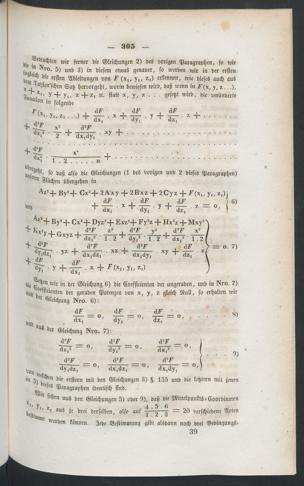 — 305 —
Betrachten wir ferner die Gleichungen 2) des vorigen Paragraphen, so wie
die in Nro. 5) und 3) in diesem etwas genauer, so werden wir in der ersten
sogleich die ersten Ableitungen von F (x₁, y₁, z₁) erkennen, wie dieß auch aus
dem Taylor'schen Satz hervorgeht, worin bewiesen wird, daß wenn in F (x, y, z …),
x + x₁, y + y₁, z + z₁ rc. statt x, y, z … gesetzt wird, die veränderte
Function in folgende
F (x₁, y₁, z₁, …) + dF/dx₁ . x + dF/dy₁ . y + dF/dz₁ . z + . . . .
+ d²F/dx₁² . x²/2 + d²F/dx₁dy₁ . xy + . . . . . . .
+ . . . . . . . . .
+ dⁿF/dx₁ⁿ . xⁿ/1 . 2 . . . . n + . . . . . . .
übergeht, so daß also die Gleichungen (1 des vorigen und 2 dieses Paragraphen)
unserer Flächen übergehen in
Az² + By² + Cx² + 2Axy + 2Bxz + 2Cyz + F (x₁, y₁, z₁)
+ dF/dx₁ . x + dF/dy₁ . y + dF/dz₁ . z = 0, } 6)
und
+ Kx²y + Gxyz +
+ dF/dy₁ . y + dF/dx₁ . x + F (x₁, y₁, z₁) = 0. 7)
Setzen wir in der Gleichung 6) die Coefficienten der ungeraden, und in Nro. 7)
die Coefficienten der geraden Potenzen von x, y, z gleich Null, so erhalten wir
aus der Gleichung Nro. 6):
dF/dx₁ = 0, dF/dy₁ = 0, dF/dz₁ = 0, . . . . 8)
und aus der Gleichung Nro. 7):
d²F/dx₁² = 0, d²F/dy₁² = 0, d²F/dz₁² = 0,
d²F/dy₁dz₁ = 0, d²F/dx₁dz₁ = 0, d²F/dx₁dy₁ = 0, } . . 9)
von welchen die ersteren mit den Gleichungen 3) § 155 und die letztern mit jenen
in 5) dieses Paragraphen identisch sind.
Wir sehen aus den Gleichungen 5) oder 9), daß die Mittelpunkts-Coordinaten
x₁, y₁, z₁ aus je drei derselben, also auf 4 . 5 . 6/1 . 2 . 3 = 20 verschiedene Arten
bestimmt werden können. Jede Bestimmung gibt alsdann noch drei Bedingungs-
39